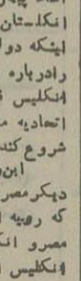 انگلستان
اینکه دو
رادرباره
انگلیس
اتحادیه م
شروع کند
این
دیگر مصر
که رویه ا
مصرو انگ
انگلیس